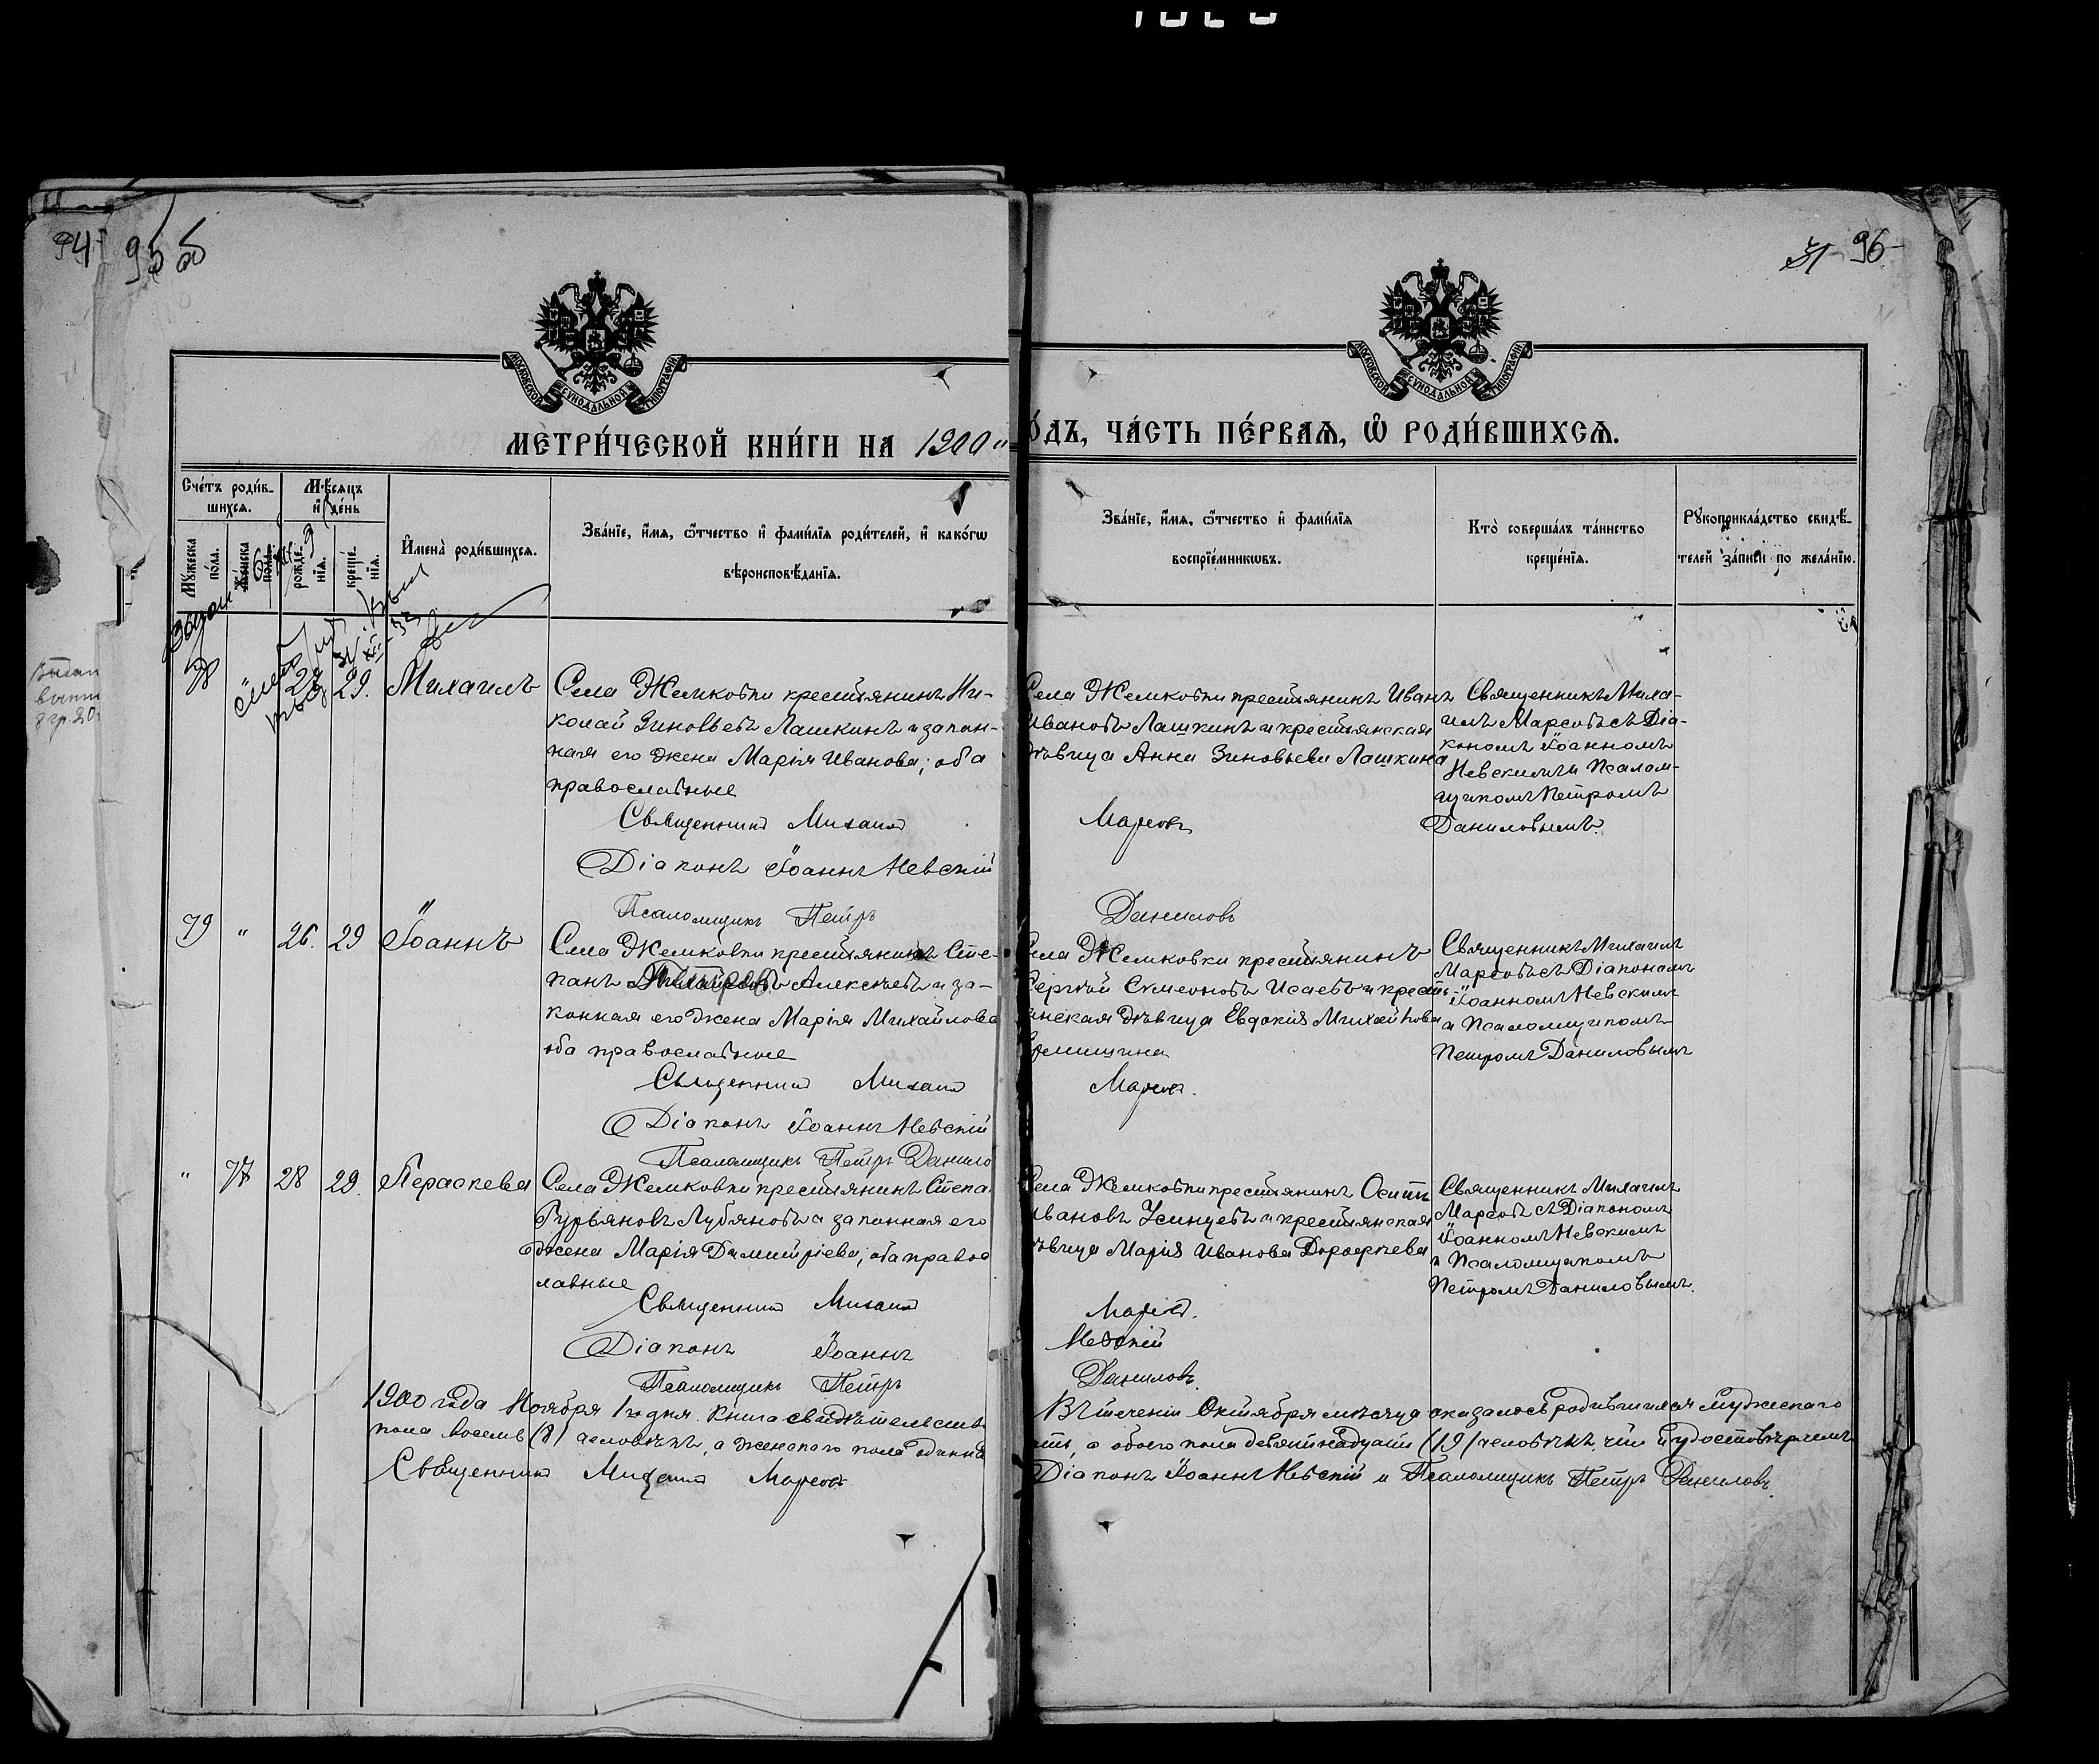 94
95 об
31 96
МОСКОВСКОЙ СУНОДАЛЬНОЙ ТИПОГРАФИИ
МОСКОВСКОЙ СУНОДАЛЬНОЙ ТИПОГРАФИИ
МЕТРИ́ЧЕСКОЙ КНИ́ГИ НА 1900
О́ДЪ, ЧА́СТЬ ПЕ́РВАѦ, Ѡ҆ РОДИ́ВШИХСѦ.
Сче́тъ роди́в-
шихсѧ.
Мꙋ́жеска по́ла.
Же́нска по́ла.
Мѣ́сѧцъ
и҆ де́нь
рожде́-
нїѧ.
креще́-
нїѧ.
И҆мена̀ роди́вшихсѧ.
Зва́нїе, и҆́мѧ, ѻ҆́тчество и҆ фами́лїѧ роди́телей, и҆ како́гѡ
вѣроисповѣ́данїѧ.
Зва́нїе, и҆́мѧ, ѻ҆́тчество и҆ фами́лїѧ
воспрїе́мникѡвъ.
Кто̀ соверша́лъ та́инство
креще́нїѧ.
Рꙋкоприкла́дство свидѣ́-
телей за́писи по жела́нїю.
29. Михаилъ
Села Жемковки крестьянинъ Ни-
колай Зиновьевъ Лашкинъ и закон-
ная его жена Марія Иванова; оба
православные
Священникъ Михаилъ
Діаконъ Іоаннъ Невскій
Псаломщикъ Петръ
Села Жемковки крестьянинъ Иванъ
Ивановъ Лашкинъ и крестьянская
дѣвица Анна Зиновьева Лашкина
Марсовъ
Даниловъ
Священникъ Миха-
илъ Марсовъ съ Діа-
кономъ Іоанномъ
Невскимъ и Псалом-
щикомъ Петромъ
Даниловымъ.
79 " 26. 29 Іоаннъ
Села Жемковки крестьянинъ Сте-
панъ Алексѣевъ и за-
конная его жена Марія Михайлова
оба православные
Священникъ Михаилъ
Діаконъ Іоаннъ Невскій
Псаломщикъ Петръ Данило
Села Жемковки крестьянинъ
Сергѣй Симеоновъ Исаевъ и кресть-
янская дѣвица Евдокія Михайлова
Марсовъ.
Священникъ Михаилъ
Марсовъ съ Діакономъ
Іоанномъ Невскимъ
и Псаломщикомъ
Петромъ Даниловымъ
" 77 28 29. Параскева
Села Жемковки крестьянинъ Степа
Гурьяновъ Лубяновъ и законная его
жена Марія Димитріева; оба правос
лавные
Священникъ Михаилъ
Діаконъ Іоаннъ
Псаломщикъ Петръ
Села Жемковки крестьянинъ Осипъ
Ивановъ Усинцевъ и крестьянская
дѣвица Марія Иванова Дорофеева
Марсовъ.
Невскій
Даниловъ
Священникъ Михаилъ
Марсовъ съ Діакономъ
Іоанномъ Невскимъ
и Псаломщикомъ
Петромъ Даниловымъ.
1900 года Ноября 1го дня. Книга свидѣтельств
Въ теченіи Октября мѣсяца оказалось родившихся мужескаго
пола восемь (8) человѣкъ, а женскаго пола одинна
ть, а обоего пола девятнадцать (19) человѣкъ, чѣмъ и удостовѣряемъ
Священникъ Михаилъ Марсовъ
Діаконъ Іоаннъ Невскій и Псаломщикъ Петръ Даниловъ.